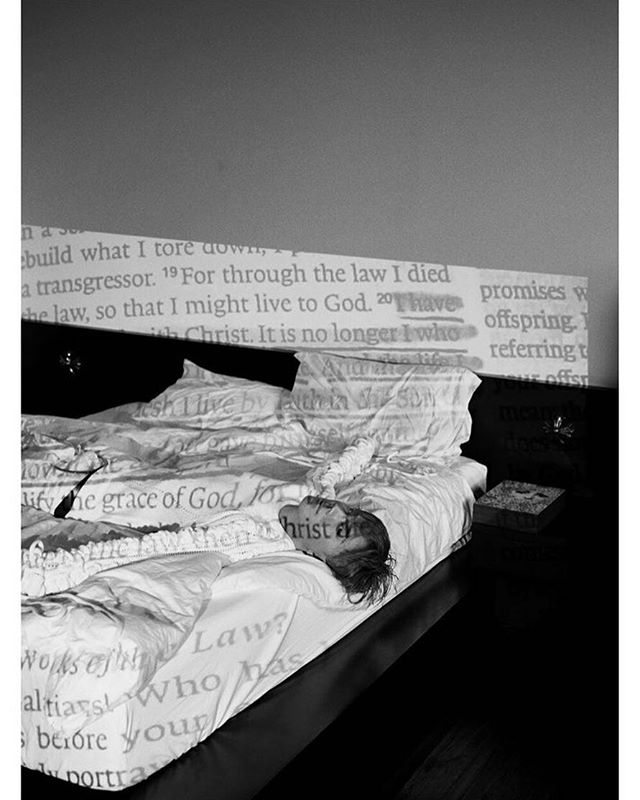 n a
ebuild what I tore down, I p
a transgressor. ¹⁹ For through the law I died
the law, so that I might live to God. ²⁰ I have
ith Christ. It is no longer I who
And the life I
esh I live by faith in the Son
gave
lify the grace of God, for
the law then Christ die
Works of th Law?
altians! Who has
before your
ly portra
promises w
offspring. I
referring t
your offspr
mean
does